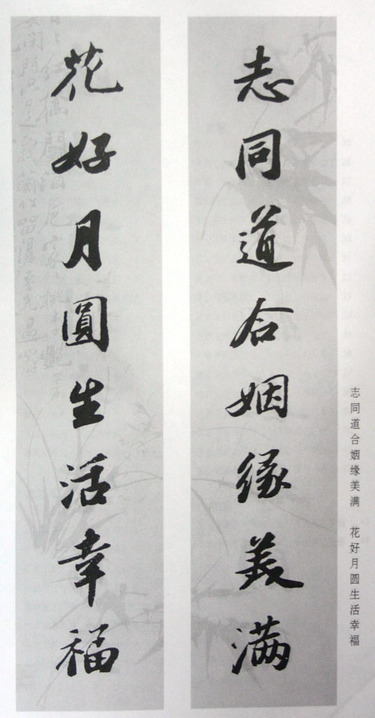 志同道合姻缘美满
花好月圓生活幸福
志同道合姻缘美满 花好月圆生活幸福